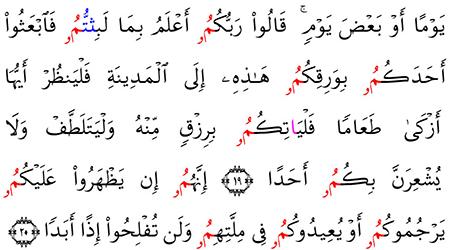 يَوْمًا أَوْ بَعْضَ يَوْمٍۚ قَالُوا۟ رَبُّكُمُۥ أَعْلَمُ بِمَا لَبِثتُّمُۥ فَٱبْعَثُوا۟
أَحَدَكُمُۥ بِوَرِقِكُمُۥ هَـٰذِهِۦ إِلَى ٱلْمَدِينَةِ فَلْيَنظُرْ أَيُّهَا
أَزْكَىٰ طَعَامًا فَلْيَاتِكُمُۥ بِرِزْقٍ مِّنْهُ وَلْيَتَلَطَّفْ وَلَا
يُشْعِرَنَّ بِكُمُۥ أَحَدًا ﴿١٩﴾ إِنَّهُمُۥ إِن يَظْهَرُوا۟ عَلَيْكُمُۥ
يَرْجُمُوكُمُۥ أَوْ يُعِيدُوكُمُۥ فِى مِلَّتِهِمُۥ وَلَن تُفْلِحُوا۟ إِذًا أَبَدًا ﴿٢٠﴾